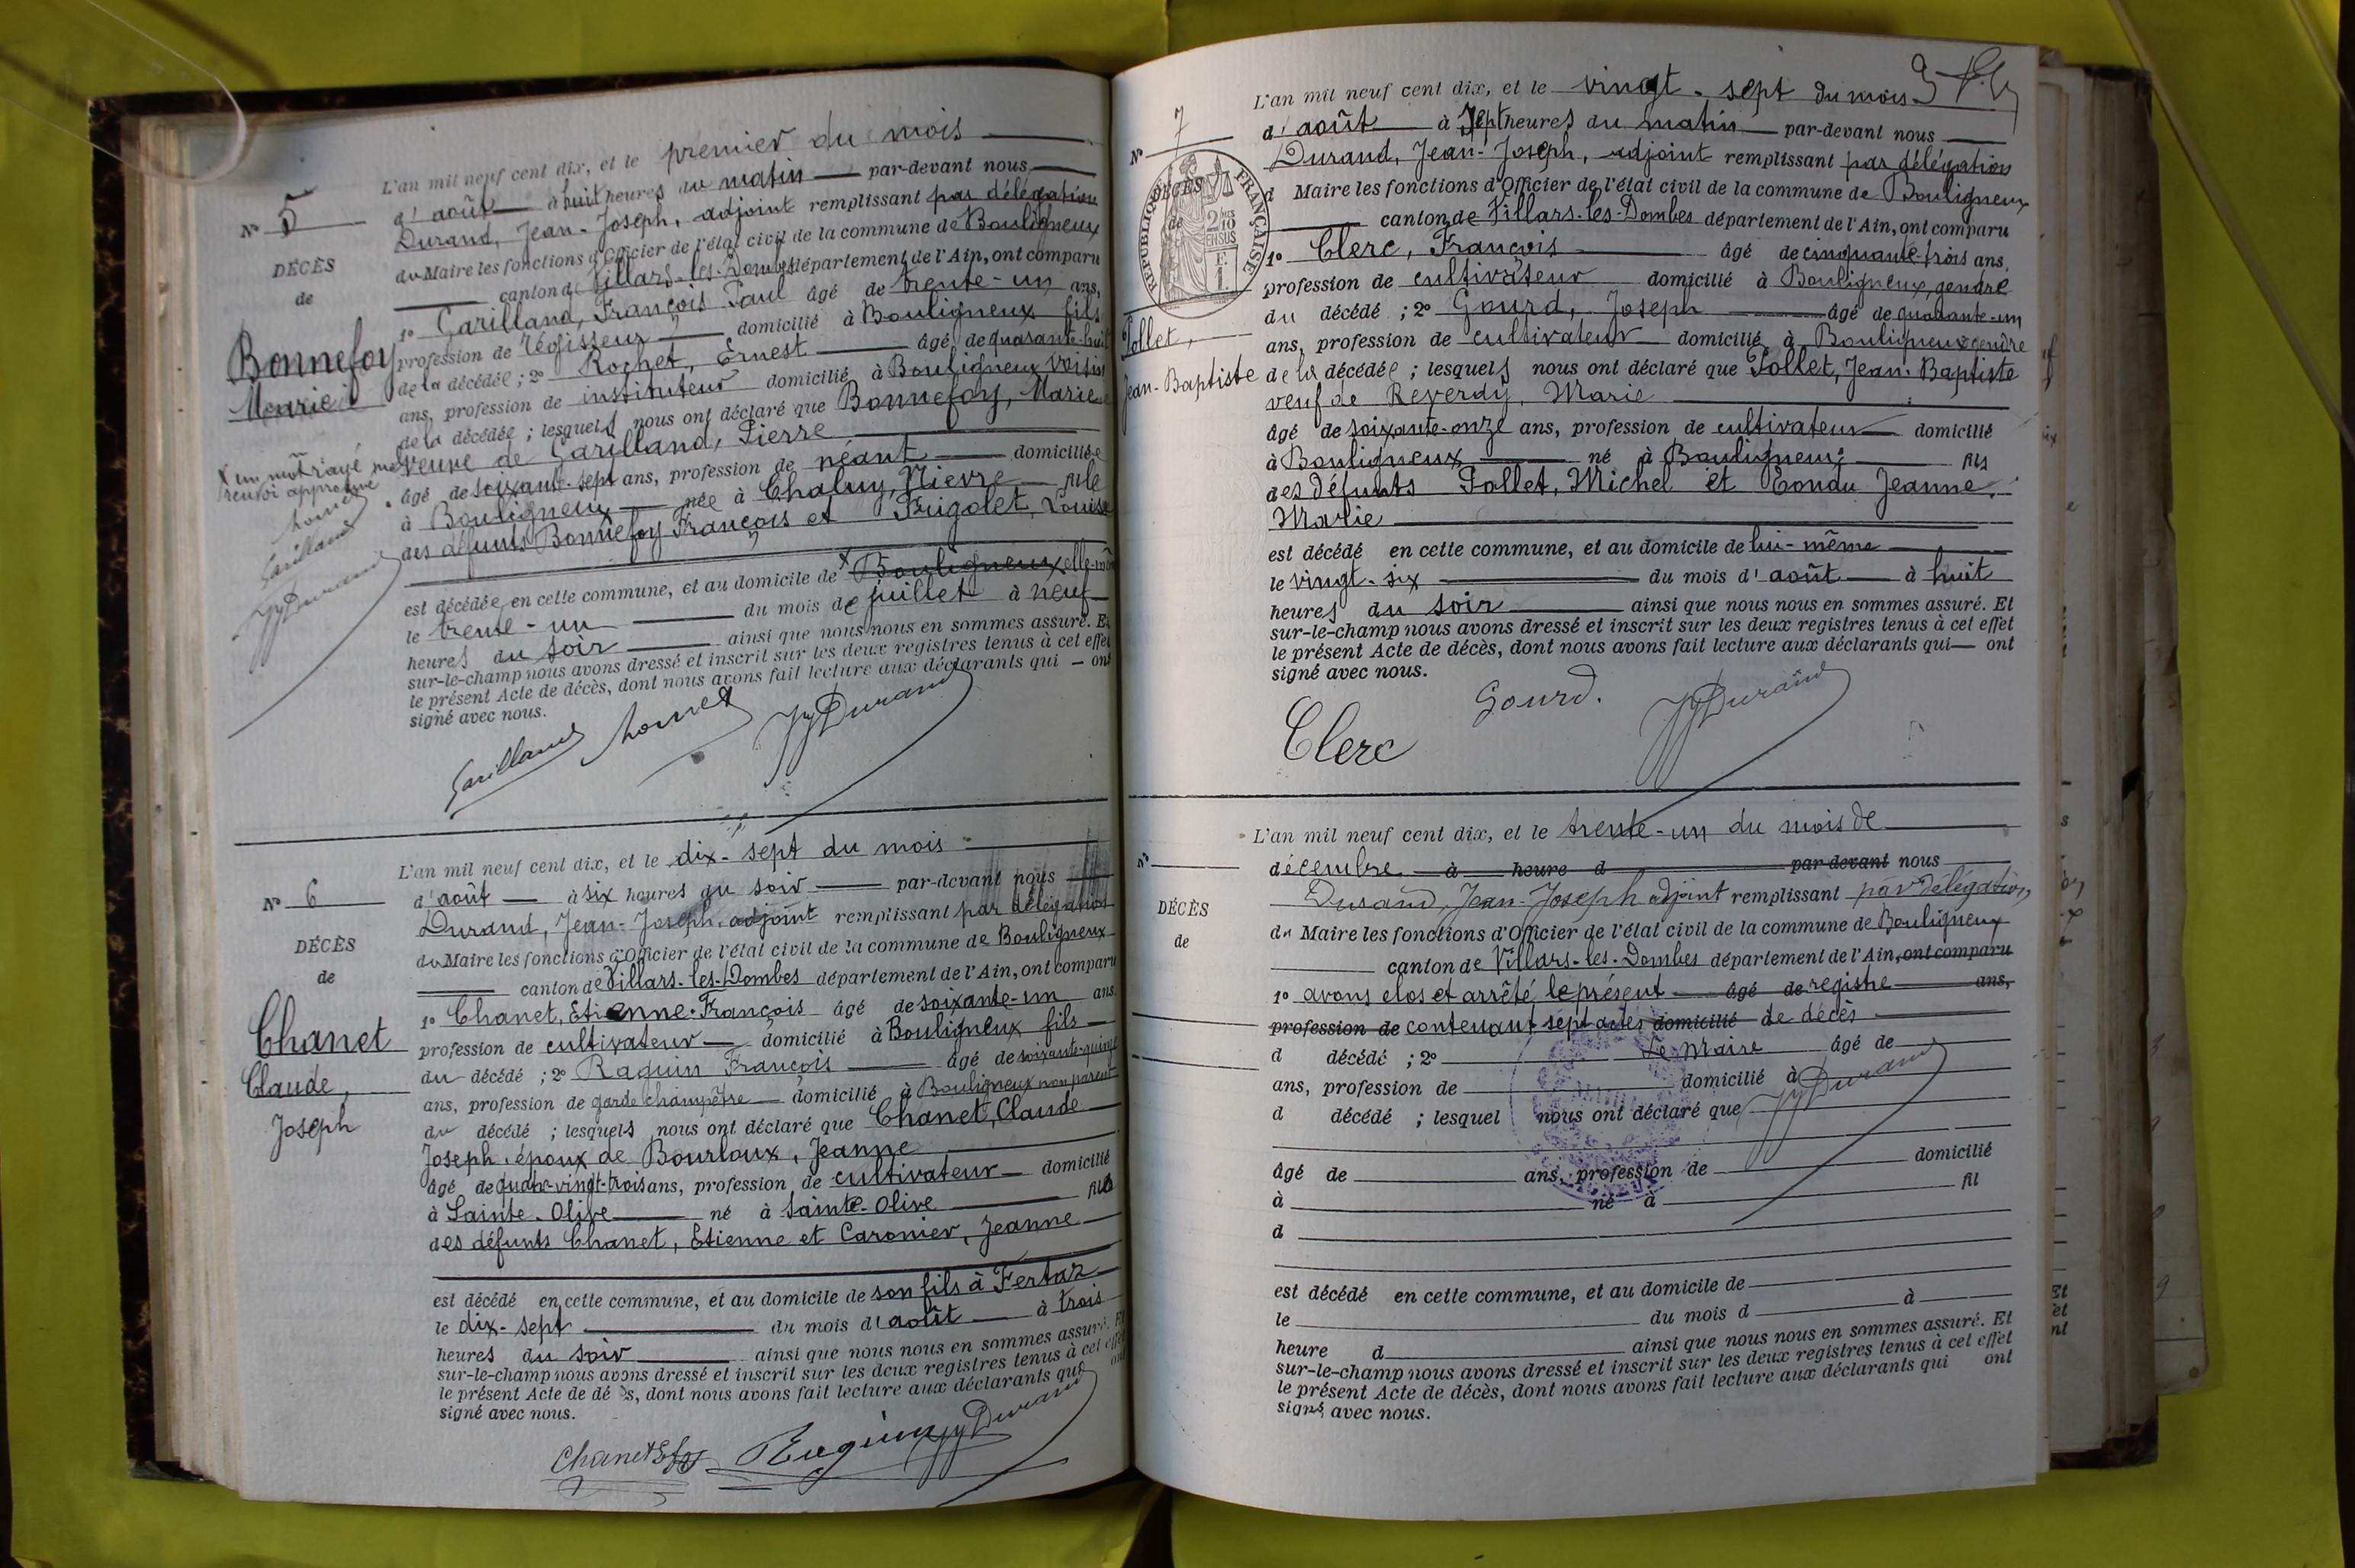 L'an mil neuf cent dix, et le premier du mois
N° 5
d'août à huit heures du matin par-devant nous
Durand, Jean-Joseph, adjoint remplissant par délégation
DÉCÈS
du Maire les fonctions d'Officier de l'état civil de la commune de Bouligneux
de
canton de Villars-les-Dombes département de l'Ain, ont comparu
1° Garilland, François Paul âgé de trente-un ans,
Bonnefoy
profession de régisseur domicilié à Bouligneux fils
Marie
de la décédée ; 2° Rochet, Ernest âgé de quarante-huit
ans, profession de instituteur domicilié à Bouligneux voisin
de la décédée ; lesquels nous ont déclaré que Bonnefoy, Marie
veuve de Garilland, Pierre
X un mot rayé nul
renvoi approuvé
âgé de soixante-sept ans, profession de néant domiciliée
à Bouligneux née à Chaluy, Nièvre fille
des défunts Bonnefoy François et Frigolet, Louise
Garilland
JJDurand
est décédée en cette commune, et au domicile de X Bouligneux elle-même
le trente-un du mois de juillet à neuf
heures du soir ainsi que nous nous en sommes assuré. Et
sur-le-champ nous avons dressé et inscrit sur les deux registres tenus à cet effet
le présent Acte de décès, dont nous avons fait lecture aux déclarants qui ont
signé avec nous.
Garilland JJDurand
L'an mil neuf cent dix, et le dix-sept du mois
N° 6
d'août à six heures du soir par-devant nous
Durand, Jean-Joseph, adjoint remplissant par délégation
DÉCÈS
du Maire les fonctions d'Officier de l'état civil de la commune de Bouligneux
de
canton de Villars-les-Dombes département de l'Ain, ont comparu
1° Chanet, Etienne-François âgé de soixante-un ans
Chanet
profession de cultivateur domicilié à Bouligneux fils
Claude,
du décédé ; 2° Raquin François âgé de soixante-quinze
Joseph
ans, profession de garde champêtre domicilié à Bouligneux non parent
du décédé ; lesquels nous ont déclaré que Chanet, Claude
Joseph, époux de Bourloux, Jeanne
âgé de quatre-vingt-trois ans, profession de cultivateur domicilié
à Sainte-Olive né à Sainte-Olive fils
des défunts Chanet, Etienne et Caronier, Jeanne
est décédé en cette commune, et au domicile de son fils à Fertaz
le dix-sept du mois d'août à trois
heures du soir ainsi que nous nous en sommes assuré. Et
sur-le-champ nous avons dressé et inscrit sur les deux registres tenus à cet effet
le présent Acte de décès, dont nous avons fait lecture aux déclarants qui ont
signé avec nous.
Chanet Raquin JJDurand
L'an mil neuf cent dix, et le vingt-sept du mois
N° 7
d'août à sept heures du matin par-devant nous
Durand, Jean-Joseph, adjoint remplissant par délégation
RÉPUBLIQUE FRANÇAISE
DÉCÈS
de
d Maire les fonctions d'Officier de l'état civil de la commune de Bouligneux
canton de Villars-les-Dombes département de l'Ain, ont comparu
1° Clerc, François âgé de cinquante-trois ans,
profession de cultivateur domicilié à Bouligneux, gendre
du décédé ; 2° Gourd, Joseph âgé de quarante-un
Jollet,
ans, profession de cultivateur domicilié à Bouligneux gendre
Jean-Baptiste
de la décédée ; lesquels nous ont déclaré que Jollet, Jean-Baptiste
veuf de Reverdy, Marie
âgé de soixante-onze ans, profession de cultivateur domicilié
à Bouligneux né à Bouligneux fils
des défunts Jollet, Michel et Tondu Jeanne,
Marie
est décédé en cette commune, et au domicile de lui-même
le vingt-six du mois d'août à huit
heures du soir ainsi que nous nous en sommes assuré. Et
sur-le-champ nous avons dressé et inscrit sur les deux registres tenus à cet effet
le présent Acte de décès, dont nous avons fait lecture aux déclarants qui ont
signé avec nous.
Clerc Gourd. JJDurand
L'an mil neuf cent dix, et le trente-un du mois de
N°
décembre à heure d par-devant nous
Durand, Jean-Joseph adjoint remplissant par délégation
DÉCÈS
du Maire les fonctions d'Officier de l'état civil de la commune de Bouligneux
de
canton de Villars-les-Dombes département de l'Ain, ont comparu
1° avons clos et arrêté le présent âgé de registre ans,
profession de contenant sept actes domicilié de décès
d décédé ; 2° Le Maire âgé de
ans, profession de domicilié à
JJDurand
d décédé ; lesquel nous ont déclaré que
âgé de ans, profession de domicilié
à né à fil
d
est décédé en cette commune, et au domicile de
le du mois d à
heure d ainsi que nous nous en sommes assuré. Et
sur-le-champ nous avons dressé et inscrit sur les deux registres tenus à cet effet
le présent Acte de décès, dont nous avons fait lecture aux déclarants qui ont
signé avec nous.